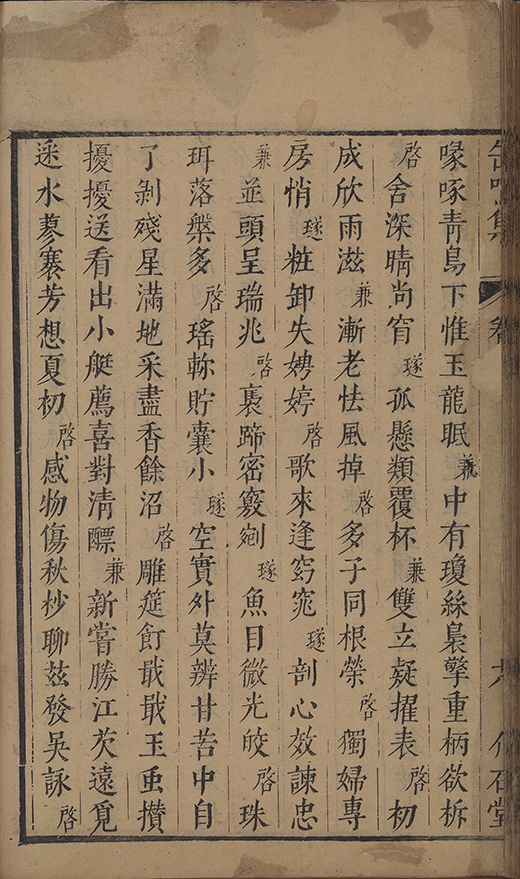 集 卷 六 介石堂
喙啄青鳥下惟玉龍眠兼中有瓊絲裊擎重柄欲柝
啓舍深晴尚窅璲孤懸類覆杯兼雙立疑擢表啓初
成欣雨滋兼漸老怯風掉啓多子同根榮啓獨婦專
房悄璲粧卸失娉婷啓歌來逢窈窕璲剖心效諫忠
兼並頭呈瑞兆啓裹蹄密竅剜璲魚目微光皎啓珠
珥落槃多啓瑤軫貯囊小璲空實外莫辨甘苦中自
了剝殘星滿地采盡香餘沼啓雕筵飣戢戢玉虫攢
擾擾送看出小艇薦喜對清醥兼新嘗勝江芡遠覓
迷水蓼搴芳想夏初啓感物傷秋杪聊茲發吳詠啓